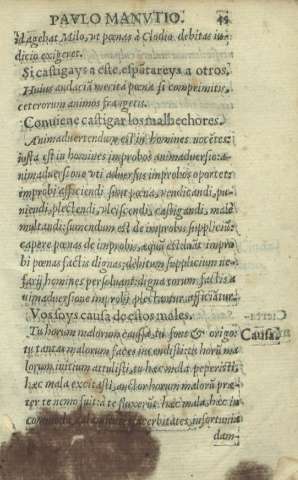 PAVLO MANVTIO. 49
Magebat Milo, vt pœnas à Clodio debitas iu-
dicio exigeret.
Si castigays a este, espãtareys a otros.
Huius audaciã merita pœna si comprimitis,
ceterorum animos frangetis.
Conuiene castigar los malhechores.
Animaduertendum est in homines nocẽtes:
iusta est in homines improbos animaduersio: a-
nimaduersione vti aduersus improbos oportet:
improbi afficiendi sunt pœna, vendicandi, pu-
niendi, plectendi, vlciscendi, castigandi, male
multandi: sumendum est de improbis suppliciũ:
capere pœnas de improbis, æquũ est: dãt impro
bi pœnas factis dignas: debitum supplicium ne-
farij homines persoluant: digna suorum factis a
nimaduersione improbi plectantur, afficiãtur.
Vos soys causa de estos males.
Tu horum malorum caussa, tu fons & origo:
Causa.
tu tantas malorum faces incendisti: tu horũ ma
lorum initium attulisti, tu hæc mala peperisti,
hæc mala excitasti, auctor horum malorũ præ-
ter te nemo fuit: à te fluxerũt hæc mala, hæc in
commoda, acerbitates, infortunia
dam-